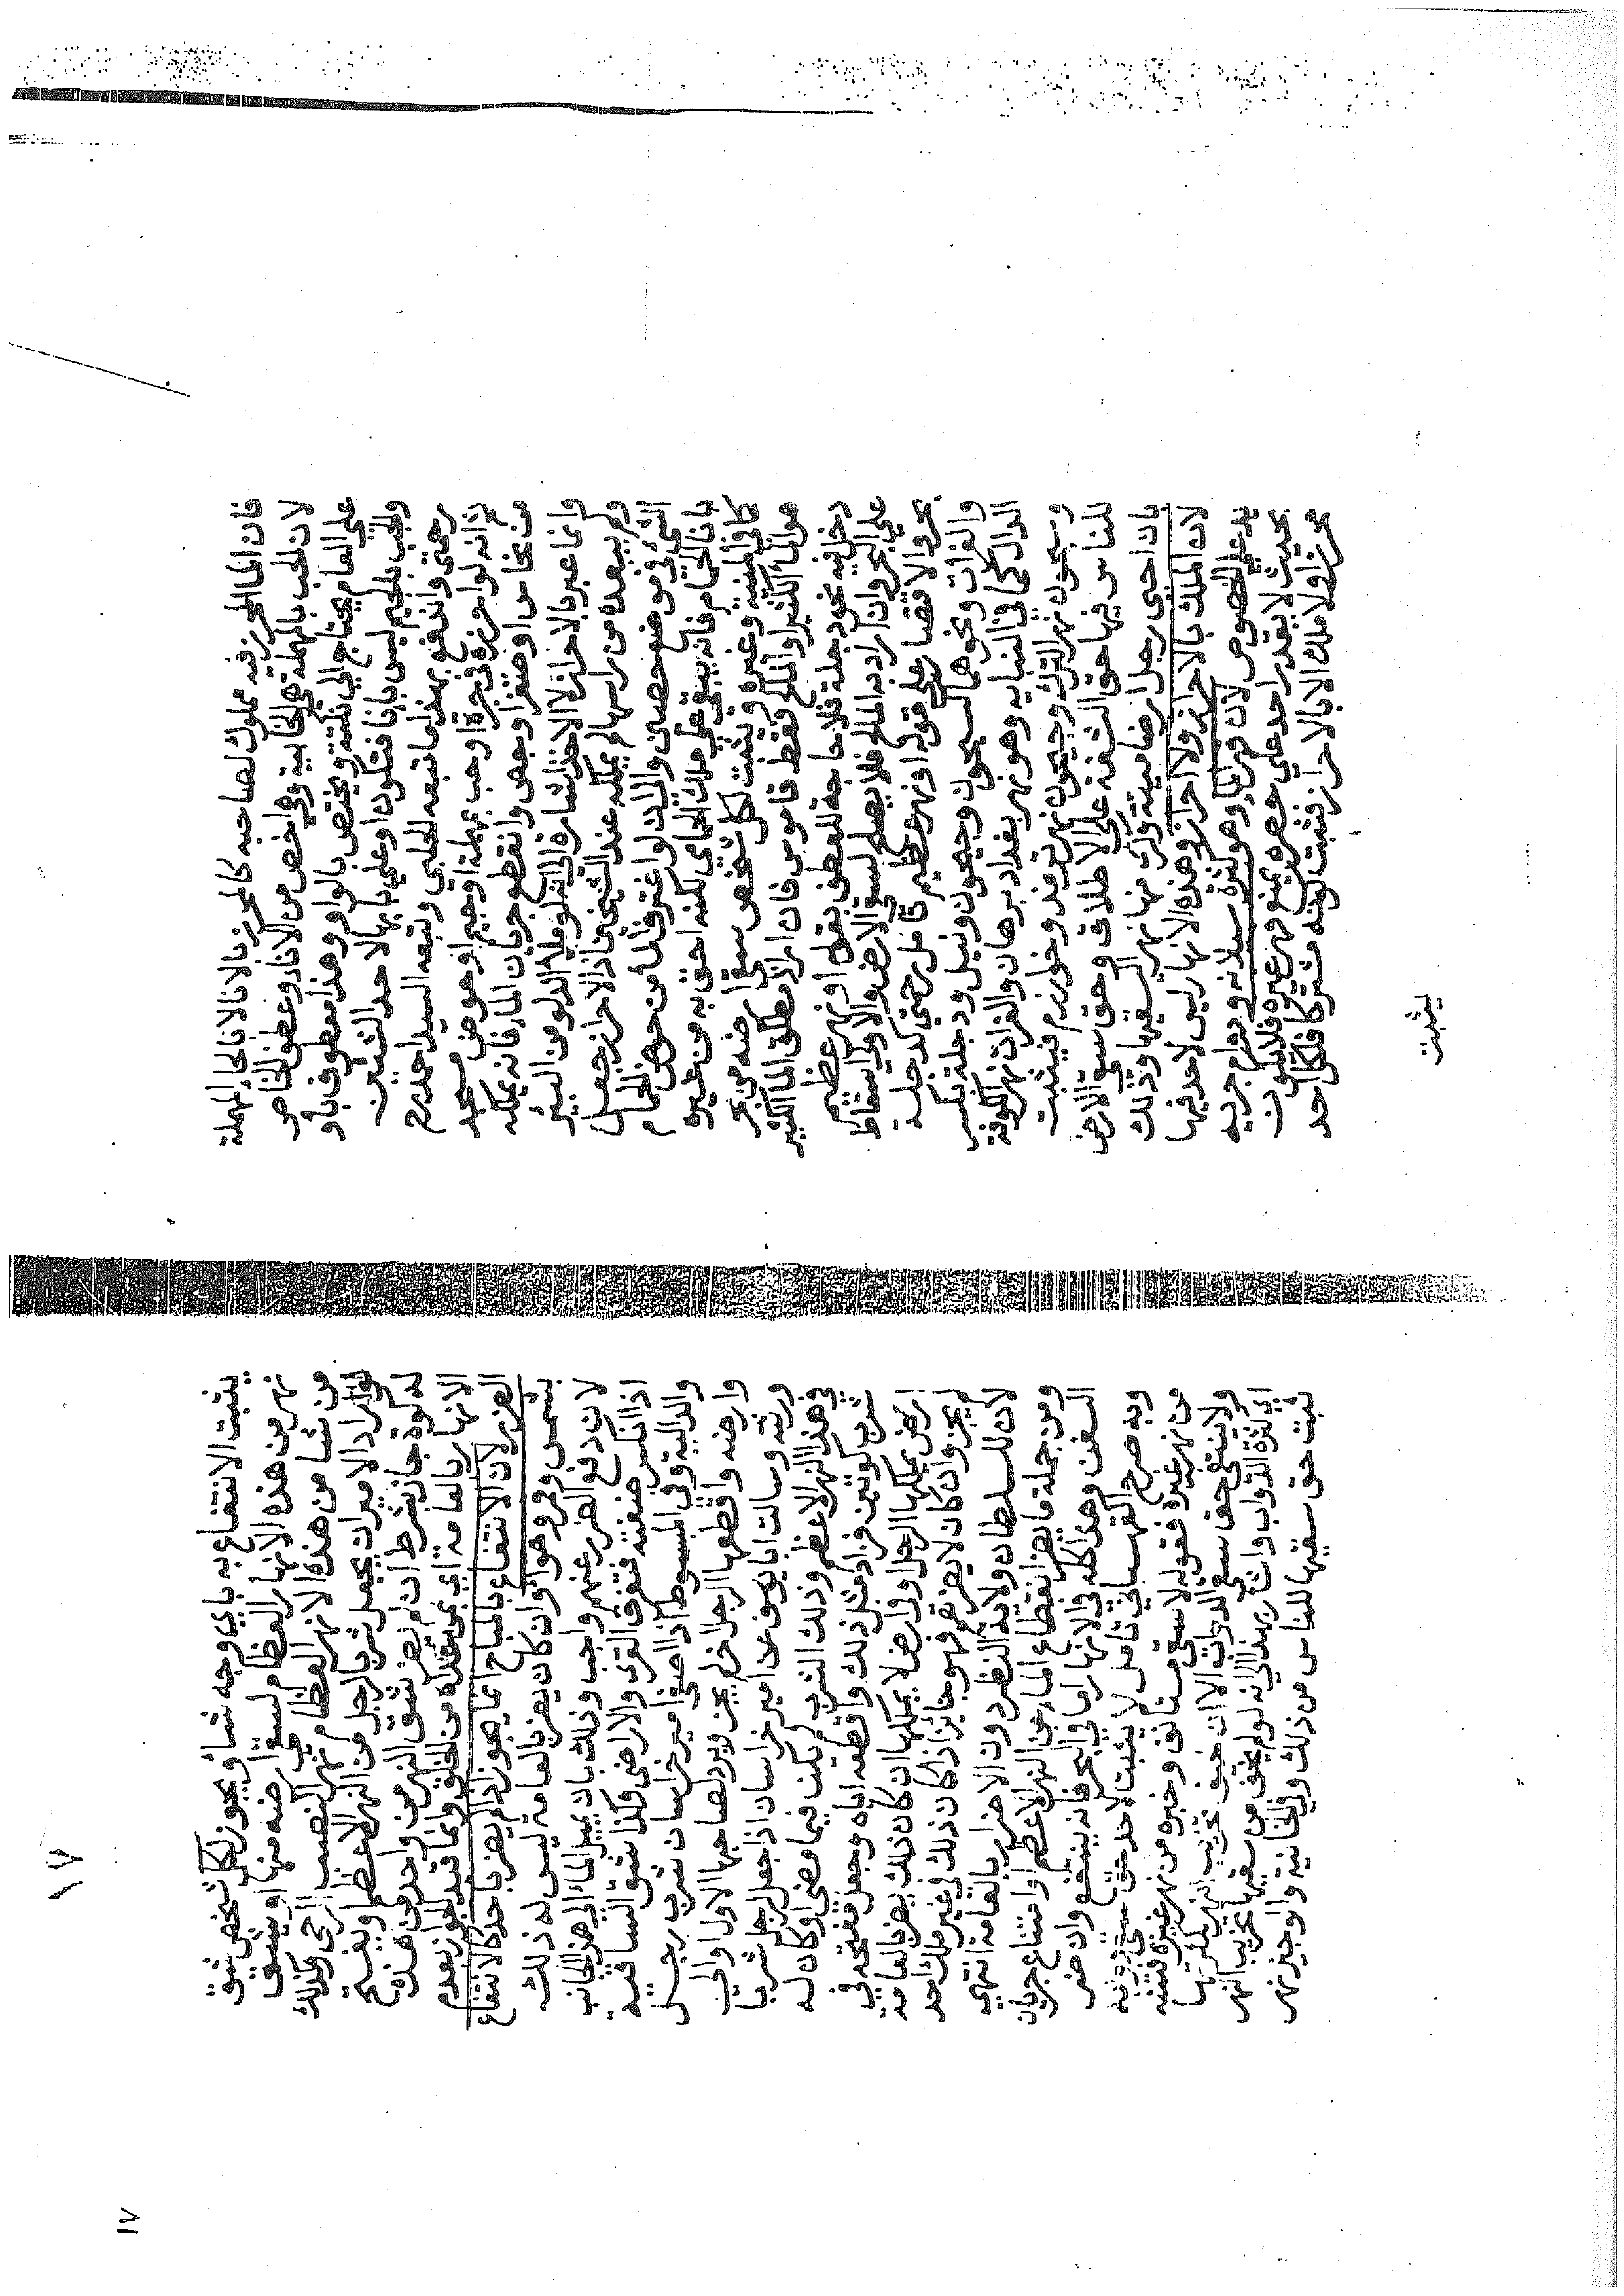 فان الما المحرز فيه مملوك لصاحبه كالمحرز بالانا لا نا لحا المهملة
لان الحب بالمهملة هي الخابية وهي اخص من الانا وعطف الخاص
علي العام يحتاج الي نكتة ويختص بالواو وهذا معطوف باو
والجب بالجيم ليس بانا فتكون او علي بابها لاحد الشيئين
رحمتي واندفع بهذا ما تبعه الحلبي وتبعه السيد احمد رح
ثم انه لو احرزه في جرة او حب بمهملة او جيم او حوض مسجد
من نحاس او صفر او جص وانقطع جريان الما فانه يملكه
وانما عبر بالاحراز لا الاخذ اشارة الي انه لو ملا الدلو من البئر
ولم يبعده من راسها لم يملكه عند الشيخين اذ الاحراز جعل
الشئ في موضع حصين والي ان لو اغترف الماء من حوض الحمام
بانا الحمام فانه يبقي علي ملك الحمامي لكنه احق به من غيره
كما في المنية وغيره ويثبت لكل شخص سقي ارضه من بحر
هو الماء الكثير او المالح فقط قاموس فان اراد مطلق الما الكثير
دخل فيه نحو دجلة فلا حاجة للعطف بقوله او نهر عظيم
علي البحر وان اراد به المالح فلا يصلح لسقي الارض والاولي اسقاط
بحر والاقتصار علي قوله او نهر عظيم تامل رحمتي كدجلة
والفرات ونحوهما كسيحون وجيحون ونيل ودجلة بكسر
الدال كما في النهايه وهو نهر بغداد برهان والفرات نهر الكوفة
وسيحون نهر الترك وجيحون نهر ترمذ وخوارزم فيثبت
للناس فيها حق الشفة علي الاطلاق وحق سقي الارض
بان احيي رجل ارضا ميتة وكرى منها نهرا لسقيها وذلك
لان الملك بالاحراز ولا احراز وهذه الانهار ليس لاحد فيها
يد علي الخصوص لان قهر الماء وهو كثرة سيلانه ودوام جريه
بحيث لا يقدر احد علي حصره يمنع قهر غيره فلا يكون
محرزا ولا ملك الا بالاحراز فتثبت كونه مشتركا فلكل احد
يثبت
١٧
١٧
يثبت الانتفاع به باي وجه شاؤ يجوز لكل شخص شق
نهر من هذه الانهار العظام لسقي ارضه منها او يشق
من شا من هذه الانهر العظام نهر النصب الرحي وكذلك
لو اراد الامير ان يجعل شربا لرجل من النهر الاعظم ويفتح
له كوة جاز بشرط ان لم يضر شق النهر من واحد من هذه
الانهار بالعامة اي من هذه من الخلق وانما قيد الجواز بعدم
الضرر لان الانتفاع بالمباح انما يجوز اذا لم يضر باحد كالانتفاع
بشمس وقمر وهواء وان كان يضر بالعامة ليس له ذلك
لان دفع الضرر عنهم واجب وذلك بان يميل الماء الي هذا الجانب
اذا انكسر ضفته فتغرق القري والاراضي وكذا شق الساقية
والدالية وفي المبسوط اذا اصفي امير خراسان شرب رجل
وارضه واقطعها الرجل اخر لم يجز ويرد لصاحبها الاول او الي
ورثته وسالت ابا يوسف عن امير خراسان اذا جعل لرجل شربا
في هذا النهر الاعظم وذلك الشرب لم يكن فيما مضي او كان له
شرب كوتين فزاد مثل ذلك واقطعه اياه وجعل مفتحه في
ارض يملكها الرجل او في ارض لا يملكها ان كان ذلك يضر بالعامة
لم يجز وان كان لا يضر بهم فهو جائز اذا كان ذلك في غير ملك احد
لان للسلطان ولاية النظر دون الاضرار بالعامة انتهي
ومن جملة ما يضر انقطاع الماء عن النهر الاعظم او امتناع جريان
السفن وهذا كله في الانهار اما في البحر فانه ينتفع وان ضر
وبه صرح القهستاني تامل لا يثبت لاحد حق
من نهر غيره فقوله لا سقي مستانف وخبره من نهر غيره
ولا ينبغي حق سقي الدواب الا ان خيف تخريب النهر لكثرتها
اي كثرة الدواب واشار بهذا الي انه لو لم يخف من سقيها تخريب النهر
ثبت حق سقيها للناس من ذلك وفي الخانية والوجيز نهر